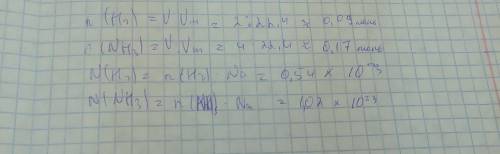 n(H₂) = V:Vm = 2:22,4 ≈ 0,09 моль
n(NH₃) = V:Vm = 4:22,4 ≈ 0,17 моль
N(H₂) = n(H₂) · Na = 0,54 × 10²³
N(NH₃) = n(NH₃) · Na = 1,02 × 10²³